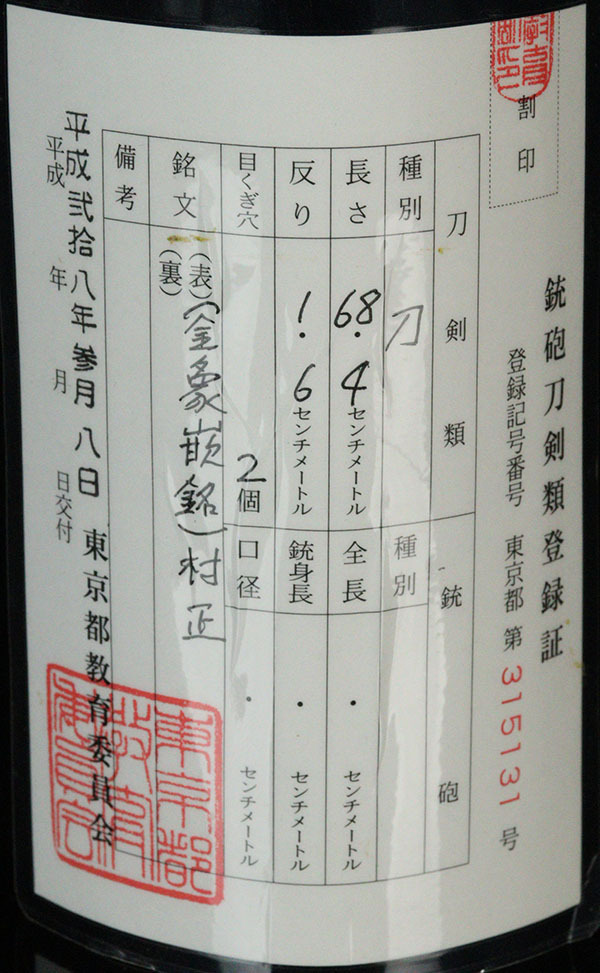 割印
銃砲刀剣類登録証
登録記号番号 東京都 第 315131 号
刀剣類
銃砲
種別 刀
種別
長さ 68.4センチメートル
全長 ・ センチメートル
反り 1.6センチメートル
銃身長 ・ センチメートル
目くぎ穴 2個
口径 ・ センチメートル
銘文 (表)(金象嵌銘)村正
(裏)
備考
平成弐拾八年参月八日
平成 年 月 日交付
東京都教育委員会
東京都教育委員会